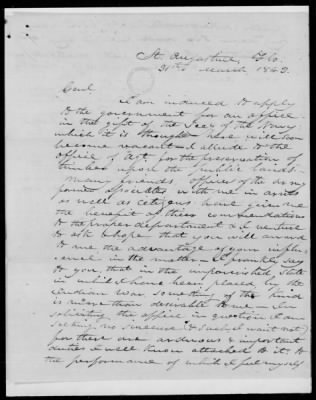 St. Augustine, Flo.
31st March 1843.
Genl.
I am induced to apply
to the government for an office
in the gift of the Sec. of the Navy
which it is thought also will soon
become vacant. I allude to the
office of Agt. for the preservation of
timber upon the public lands.
Many friends, officers of the army
former associates with me in arms
as well as citizens have given me
the benefit of their commendations
to the proper department & I venture
to ask & hope that you will award
to me the advantage of your influ-
ence in the matter. I frankly say
to you, that in the impoverished state
in which I have been placed by the
Indian War something of the kind
is more than desirable to me. In
soliciting the office in question I am
seeking no sinecure (& such I want not)
for there are arduous & important
duties I well know attached to it. to
the performance of which I feel myself